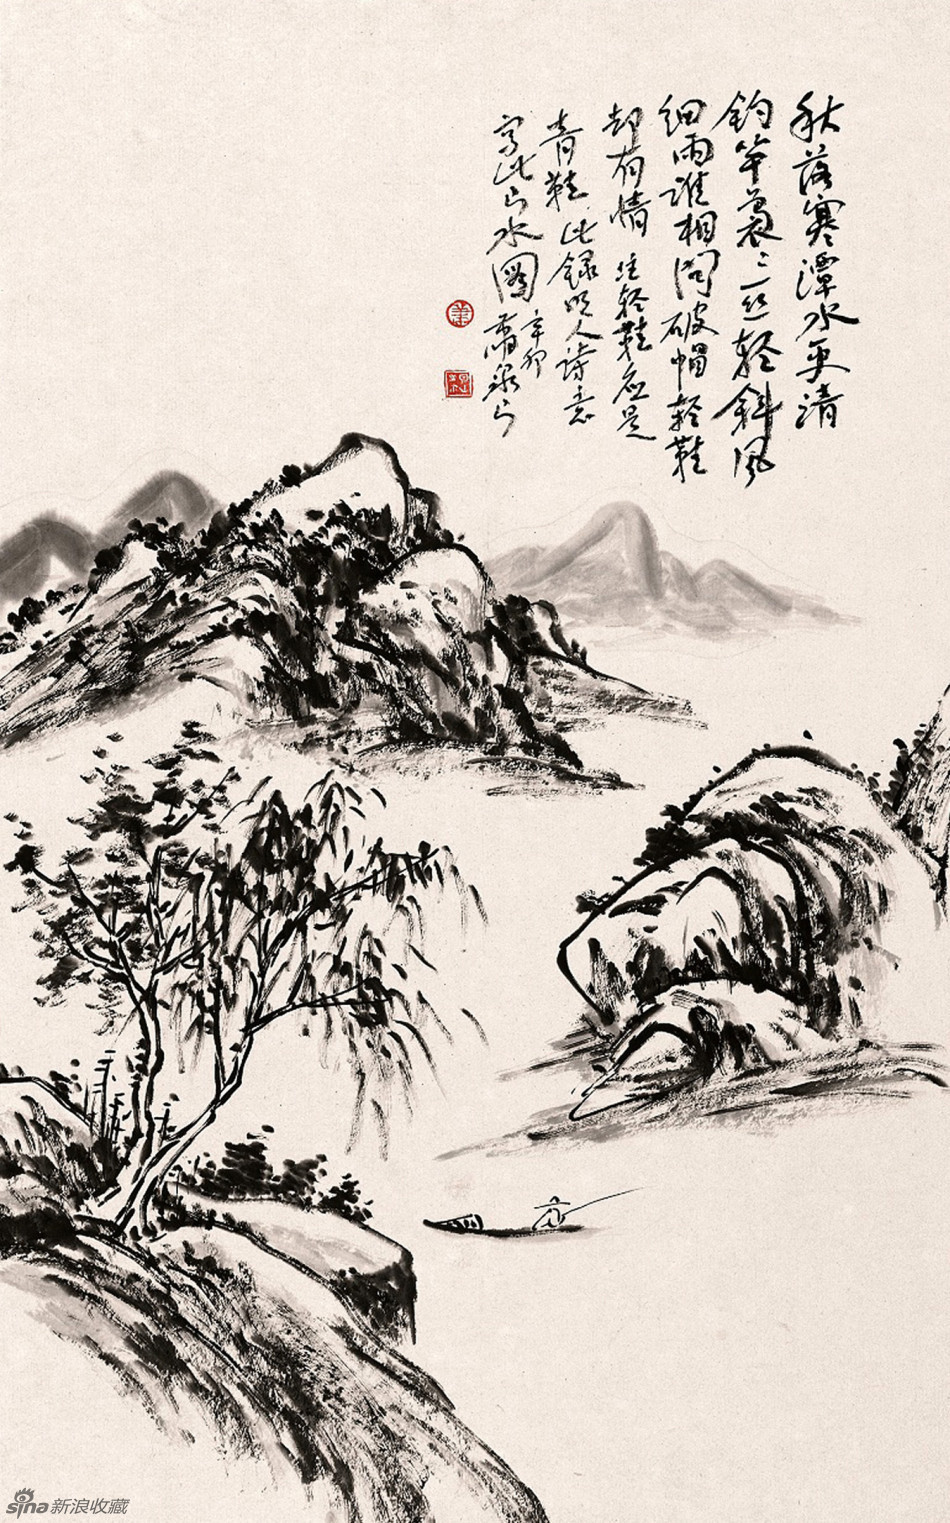 秋落寒潭水更清
钓竿袅〻一丝轻斜风
细雨谁相问破帽轻鞋
却有情 注轻鞋应是
青鞋 此录明人诗意
写此山水图 辛卯
sina新浪收藏